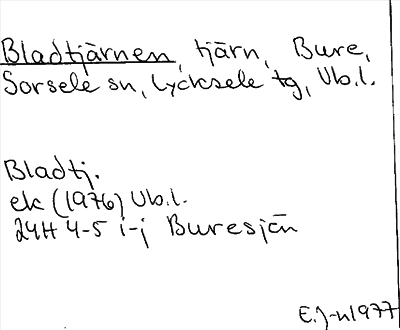 Bladtjärnen, tjärn, Bure,
Sorsele sn, Lycksele tg, Vb.l.
Bladtj.
ek (1976) Vb.l.
24H 4-5 i-j Buresjön
E.J-n 1977